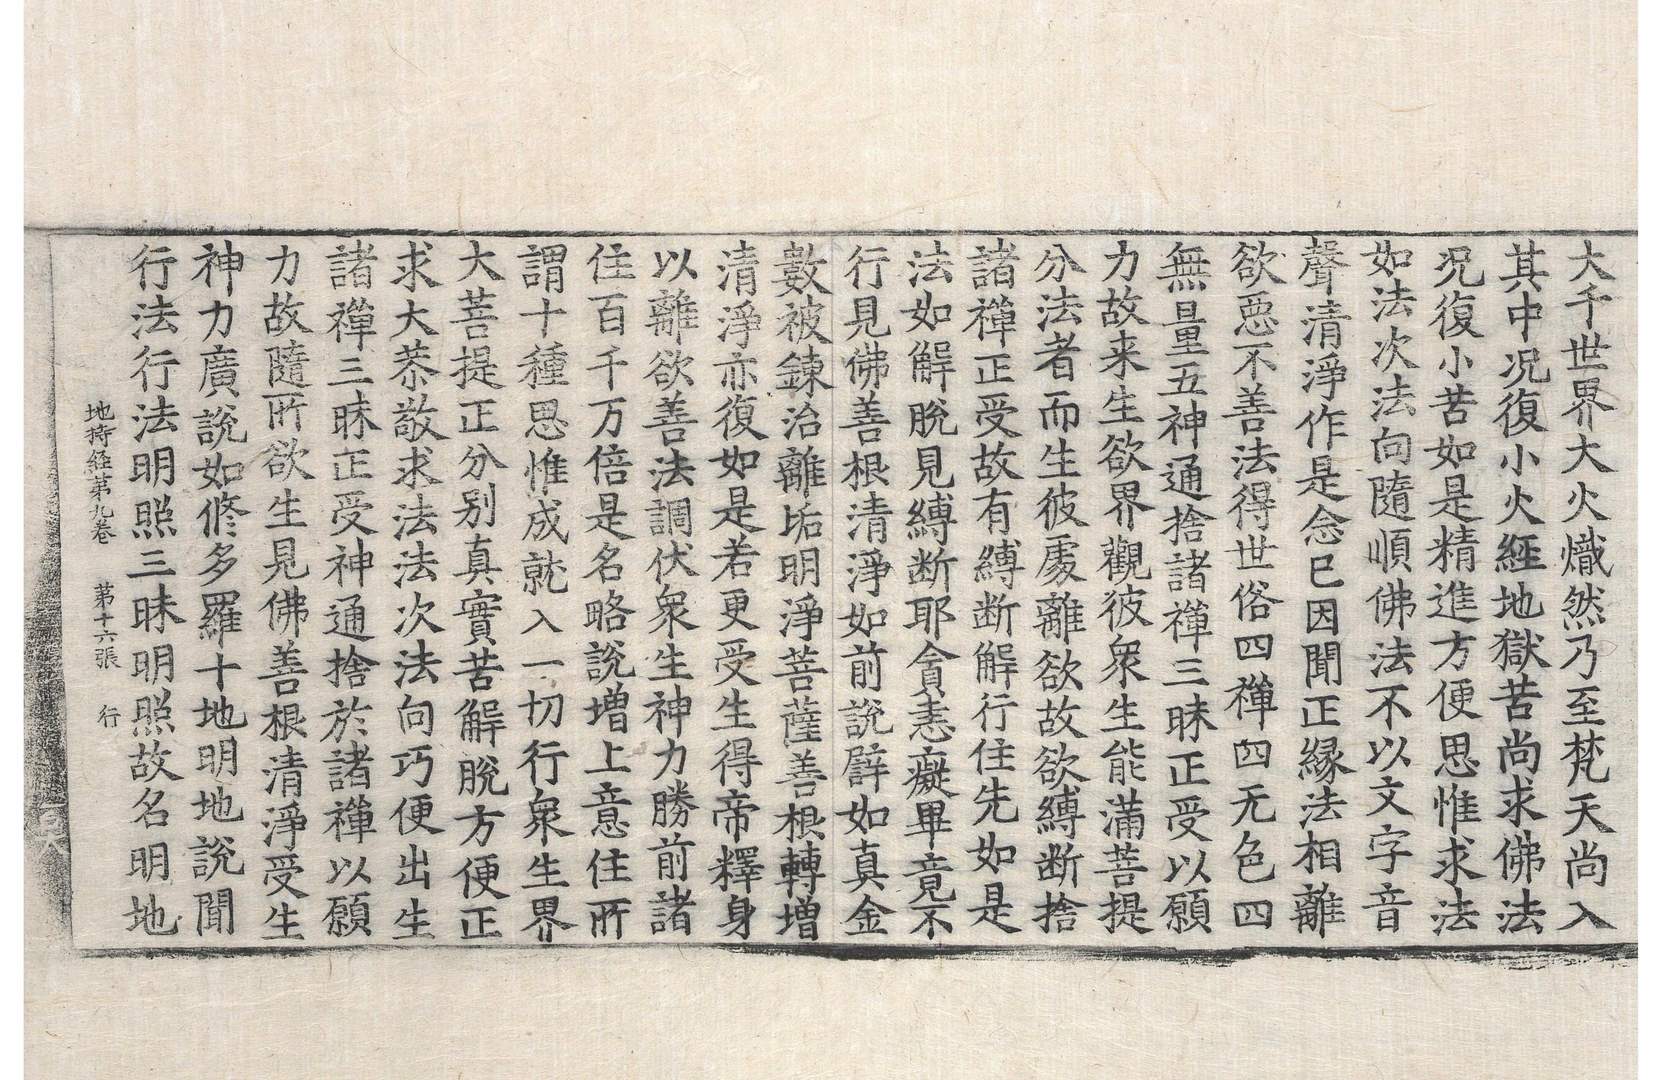 大千世界大火熾然乃至梵天尚入
其中况復小火經地獄苦尚求佛法
况復小苦如是精進方便思惟求法
如法次法向隨順佛法不以文字音
聲清淨作是念已因聞正緣法相離
欲惡不善法得世俗四禪四无色四
無量五神通捨諸禪三昧正受以願
力故来生欲界觀彼衆生能滿菩提
分法者而生彼處離欲故欲縛断捨
諸禪正受故有縛断解行住先如是
法如解脫見縛断耶貪恚癡畢竟不
行見佛善根清淨如前說譬如真金
數被鍊治離垢明淨菩薩善根轉增
清淨亦復如是若更受生得帝釋身
以離欲善法調伏衆生神力勝前諸
住百千万倍是名略說增上意住所
謂十種思惟成就入一切行衆生界
大菩提正分别真實苦解脫方便正
求大恭敬求法法次法向巧便出生
諸禪三昧正受神通捨於諸禪以願
力故隨所欲生見佛善根清淨受生
神力廣說如修多羅十地明地說聞
行法行法明照三昧明照故名明地
地持経第九卷 第十六張 行